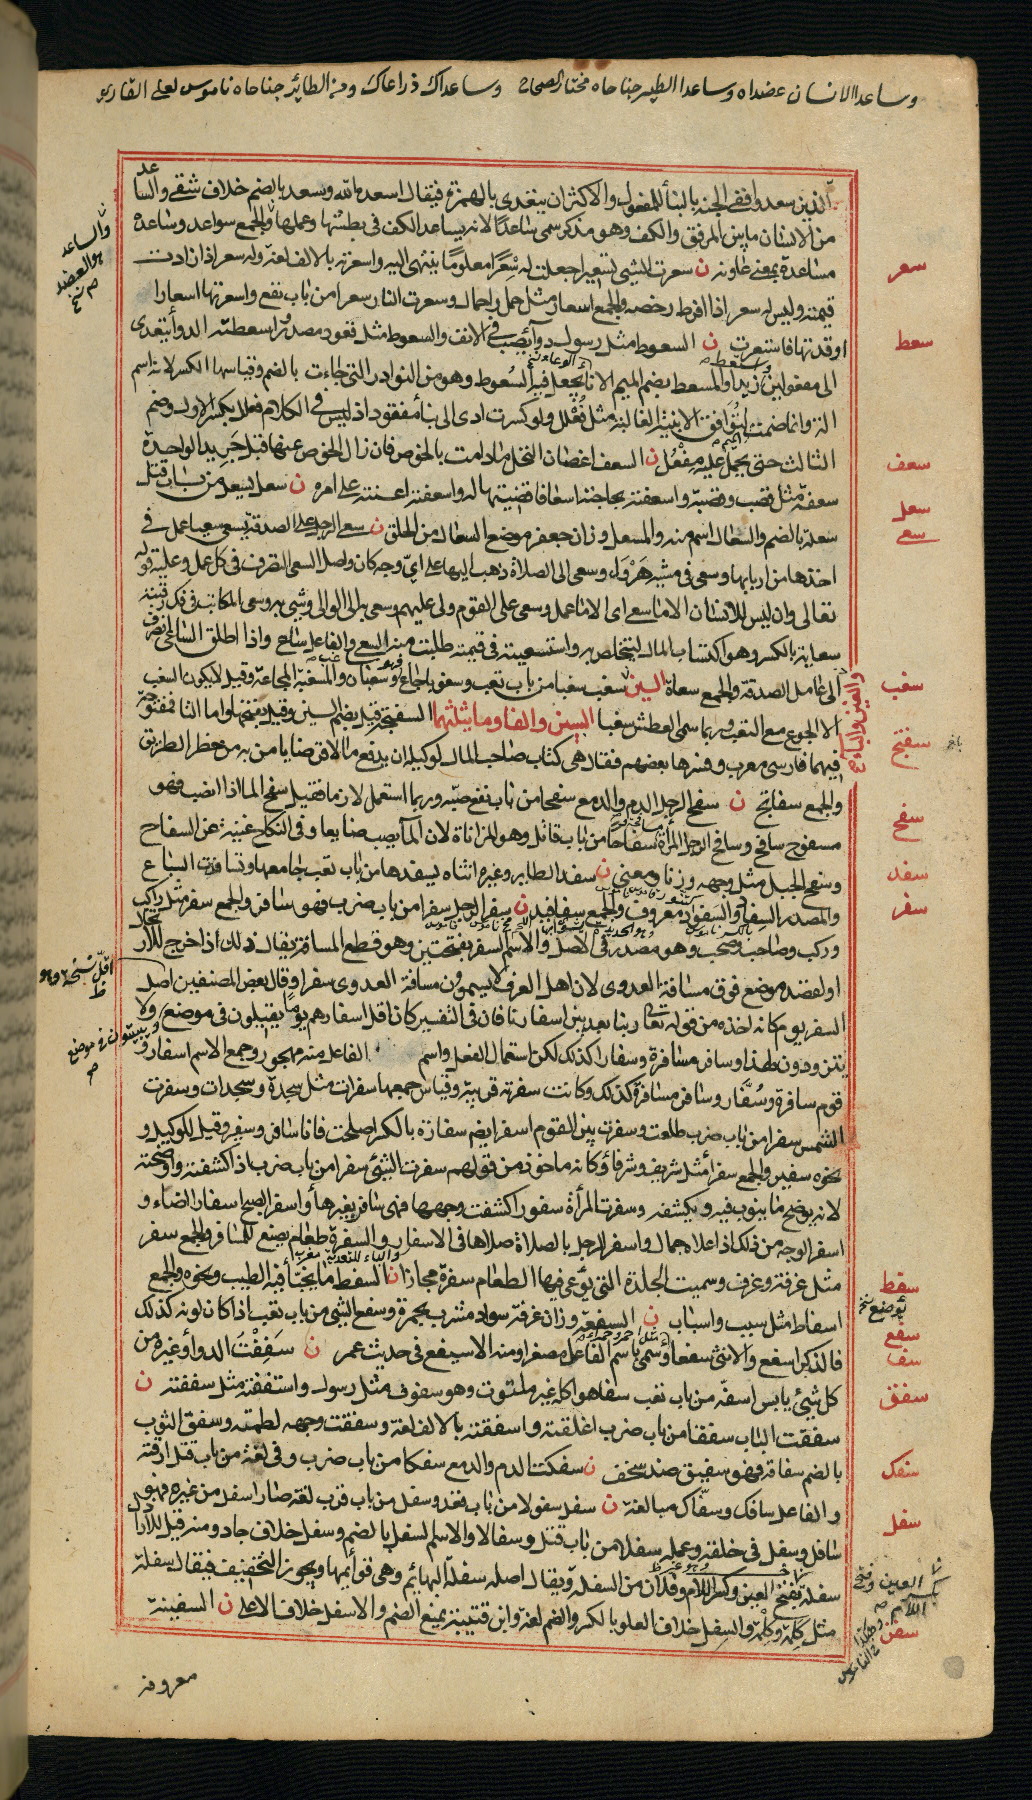 وساعدا الانسان عضداه وساعدا الطير جناحاه مختار الصحاح وساعداك ذراعاك ومن الطائر جناحاه ناموس لعلي القاري
الذين سعدوا ففي الجنة بالبنأ للمفعول والاكثران يتعدى بالهمزة فيقال اسعده الله وسعد بالضم خلاف شقي والساعد
من الانسان ما بين المرفق والكف وهو مذكر سمى ساعدًا لانه يساعد الكف في بطشها وعملها والجمع سواعد وساعده
مساعدة بمعنى عاونه ن سعرت الشيئ تسعيرا جعلت له سِعْرًا معلومًا ينتهى اليه واسعرته بالالف لغة وله سعر اذا زادت
قيمته وليس له سعر اذا افرط رخصه والجمع اسعار مثل حمل واحمال وسعرت النار سعرا من باب نفع واسعرتها اسعارا
اوقدتها فاستعرت ن السعوط مثل رسول دوأ يصب في الانف والسعوط مثل قعود مصدر واسعطته الدوأ يتعدى
الى مفعولين واستعط زيد والمسعط بضم الميم الانأ يجعل فيه السُعوط وهو من النوادر التي جاءت بالضم وقياسها الكسر لانه اسم
الة وانما ضمت لتوافق الابنية الغالبة مثل فُعْلُل ولو كسرت ادى الى بنأ مفقود اذ ليس في الكلام فعلل بكسر الاول وضم
الثالث حتى يحمل عليه مِفْعُل ن السعف اغصان النخل مادامت بالخوص فان زال الخوص عنها قيل جريد الواحدة
سعفة مثل قصب وقصبة واسعفته بحاجته اسعافا قضيتها له واسعفته اعنته على امره ن سعل يسعل من باب قتل
سعلة بالضم والسعال اسم منه والمسعل وزان جعفر موضع السعال من الحلق ن سعى الرجل على الصدقة يسعى سعيا عمل في
اخذها من اربابها وسعى في مشيه هَرْوَلَ وسعى الى الصلاة ذهب اليها على اي وجه كان واصل السعى التصرف في كل عمل وعليه قوله
تعالى وان ليس للانسان الا ما سعى اى الا ما عمل وسعى على القوم ولى عليهم وسعى به الى الوالى وشى به وسعى المكاتب في فك رقبته
سعاية بالكسر وهو اكتساب المال ليتخلص به واستسعيته في قيمته طلبت منه السعى والفاعل ساع واذا اطلق الساعى انصرف
الى عامل الصدقة والجمع سعاة السين سغب سغبا من باب تعب وسغوبا جاع فهو سغبان والمسغبة المجاعة وقيل لا يكون السغب
الا الجوع مع التعب وربما سمى العطش سغبا السين والفا وما يثلثهما السفتجة قيل بضم السين وقيل بفتحها واما التا فمفتوحة
فيهما فارسى معرب وفسرها بعضهم فقال هى كتاب صاحب المال لوكيله ان يدفع مالا قرضا يامن به من خطر الطريق
والجمع سفاتج ن سفح الرجل الدم والدمع سفحا من باب نفع صبه وربما استعمل لازما فقيل سفح الما اذا انصب فهو
مسفوح وسافح وسافح الرجل المرأة سفاحا من باب قاتل وهو المزاناة لان الما يصب ضايعا وفى النكاح غنية عن السفاح
وسفح الجبل مثل وجهه وزنا ومعنى ن سفد الطاير وغيره انثاه يسفدها من باب تعب جامعها وتسافدت السباع
والمصدر السفاد والسفود معروف والجمع سفافيد ن سفر الرجل سفرا من باب ضرب فهو سافر والجمع سفر مثل راكب
وركب وصاحب وصحب وهو مصدر في الاصل والاسم السفر بفتحتين وهو قطع المسافة يقال ذلك اذا خرج للارتحال
او لقصد موضع فوق مسافة العدوى لان اهل العرف لا يسمون مسافة العدوى سفرا وقال بعض المصنفين اصل
السفر يوم كانه اخذه من قوله تعالى ربنا بعد بين اسفارنا فان في التفسير كان اقل اسفارهم يوما يقيلون في موضع ولا
يتزودون لهذا وسافر مسافرة وسفارا كذلك لكن استعمال الفعل واسم الفاعل منه مهجور وجمع الاسم اسفار و
قوم سافرة وسُفَّار وسافر مسافرة كذلك وكانت سفرته قريبة وقياس جمعها سفرات مثل سجدة وسجدات وسفرت
الشمس سفرا من باب ضرب طلعت وسفرت بين القوم اسفر ايضم سفارة بالكسر اصلحت فانا سافر وسفير وقيل للوكيل و
نحوه سفير والجمع سفرأ مثل شريف وشرفأ وكانه ماخوذ من قولهم سفرت الشيئ سفرا من باب ضرب اذا كشفته واوضحته
لانه يوضح ما ينوب فيه ويكشفه وسفرت المرأة سفورا كشفت وجهها فهى سافر بغير هأ واسفر الصبح اسفارا اضاء و
اسفر الوجه من ذلك اذا علاه جمال واسفر الرجل بالصلاة صلاها في الاسفار والسفرة طعام يصنع للمسافر والجمع سفر
مثل غرفة وغرف وسميت الجلدة التى يوعى فيها الطعام سفرة مجازا ن السفط ما يخبأ فيه الطيب ونحوه والجمع
اسفاط مثل سبب واسباب ن السفعة وزان غرفة سواد مشرب بحمرة وسفع الشيئ من باب تعب اذا كان لونه كذلك
فالذكر اسفع والانثى سفعأ وسمى باسم الفاعل مصغرا ومنه الاسيفع في حديث عمر ن سَفِفْتَ الدوأ وغيره من
كل شيئ يابس اسفه من باب تعب سفا هو اكله غير ملتوت وهو سفوف مثل رسول واستففته مثل سففته ن
سفقت الباب سفقا من باب ضرب اغلقته واسفقته بالالف لغة وسفقت وجهه لطمته وسفق الثوب
بالضم سفاقة فهو سفيق ضد سخف ن سفكت الدم والدمع سفكا من باب ضرب وفى لغة من باب قتل ارقته
والفاعل سافك وسفّاك مبالغة ن سفل سفولا من باب قعد وسفل من باب قرب لغة صار اسفل من غيره فهو
سافل وسفل في خلقه وعمله سفلا من باب قتل وسفالا والاسم السفل بالضم وسفل خلاف جاد ومنه قيل للارذال
سفلة بفتح العين وكسر اللام وفلان من السفلة ويقال اصله سفلة البهائم وهى قوائمها ويجوز التخفيف فيقال سفلة
مثل كَلِمة وكِلْمة والسفل خلاف العلو بالكسر والضم لغة وابن قتيبة يمنع الضم والاسفل خلاف الاعلى ن السفينة
معروفة
والساعد
هو العضد
صح
سعر
سعط
سعف
سعل
سعى
سغب
والغين والباء
سفتج
سفح
سفد
سفر
سفط
يوضع نخ
سفع
سف
سفق
سفك
سفل
سفن
يبيتون في موضع
صح
العين وفتح